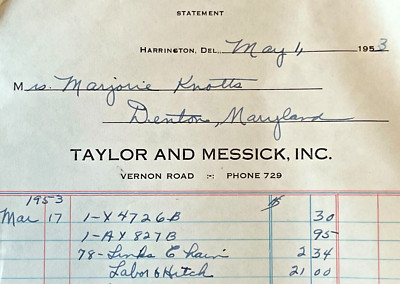 STATEMENT
HARRINGTON, DEL., May 1, 1953
Mrs. Marjorie Knotts
Denton, Maryland
TAYLOR AND MESSICK, INC.
VERNON ROAD :-: PHONE 729
1953 $
Mar 17 1-X4726B 30
1-AY827B 95
78-Links C chain 2 34
Labor & Hitch 21 00